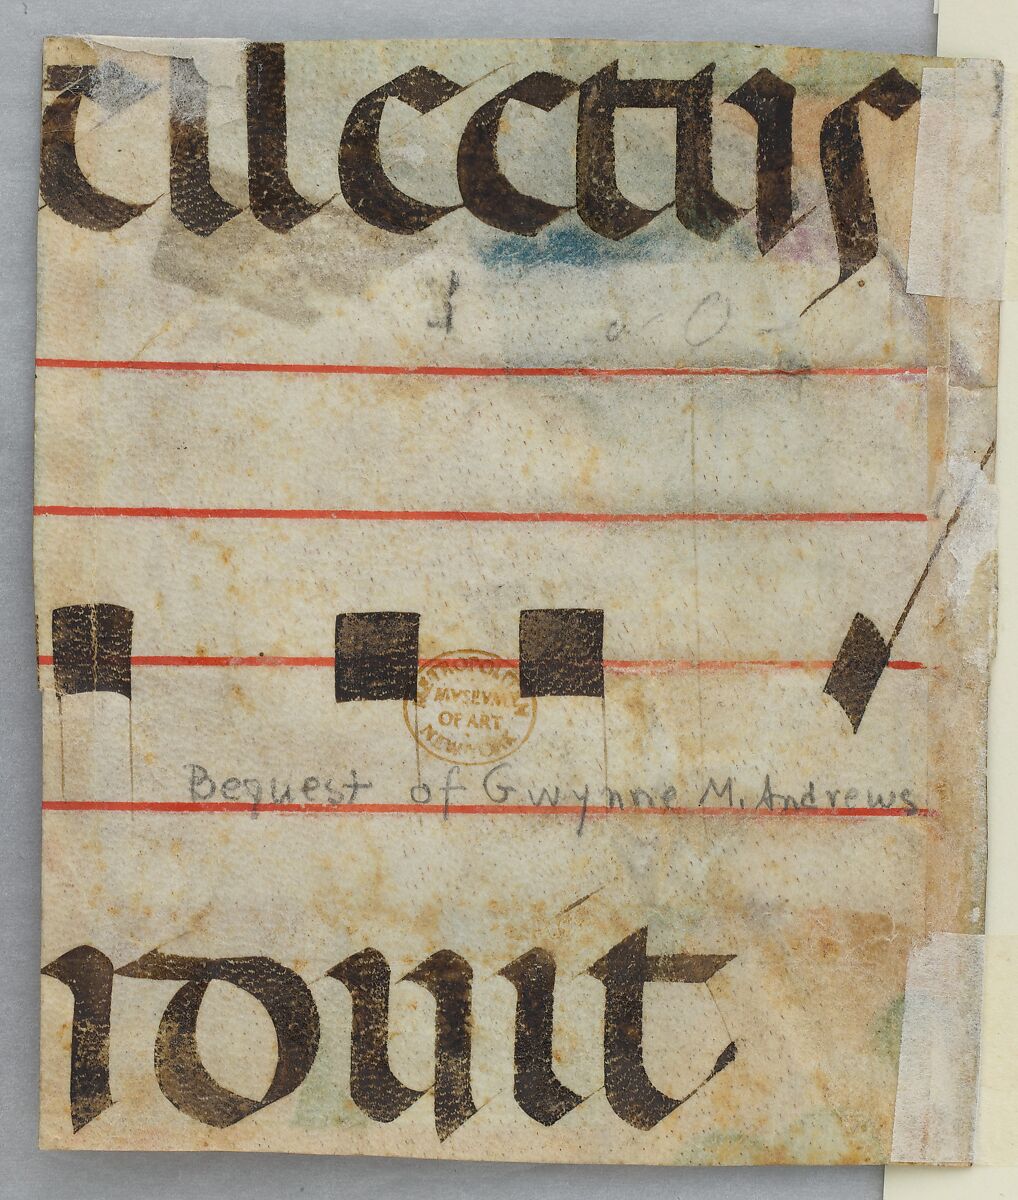 ellectus
METROPOLITAN
MVSEVM
OF ART
NEW YORK
Bequest of Gwynne M. Andrews
nduit